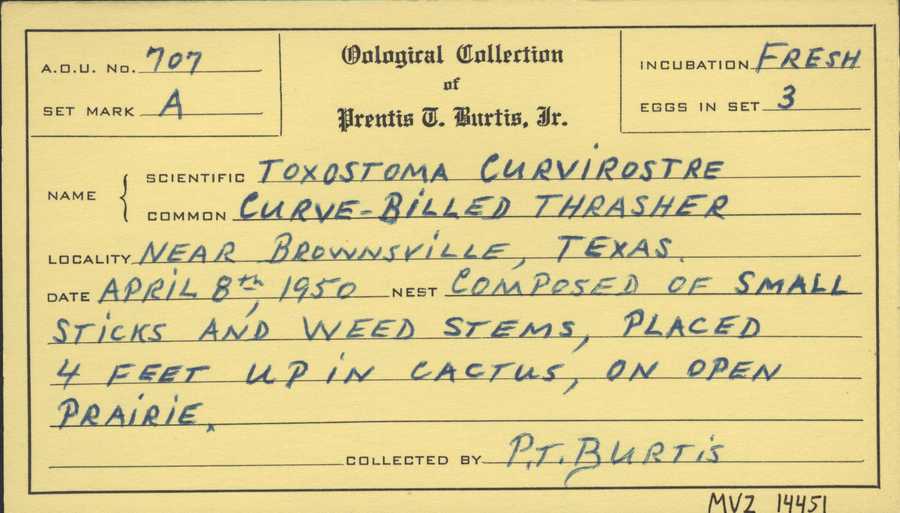 A.O.U. No. 707
SET MARK A
Oological Collection
of
Prentis T. Burtis, Jr.
INCUBATION FRESH
EGGS IN SET 3
NAME
SCIENTIFIC TOXOSTOMA CURVIROSTRE
COMMON CURVE-BILLED THRASHER
LOCALITY NEAR BROWNSVILLE, TEXAS.
DATE APRIL 8th, 1950 NEST COMPOSED OF SMALL
STICKS AND WEED STEMS, PLACED
4 FEET UP IN CACTUS, ON OPEN
PRAIRIE.
COLLECTED BY P.T. BURTIS
MVZ 14451